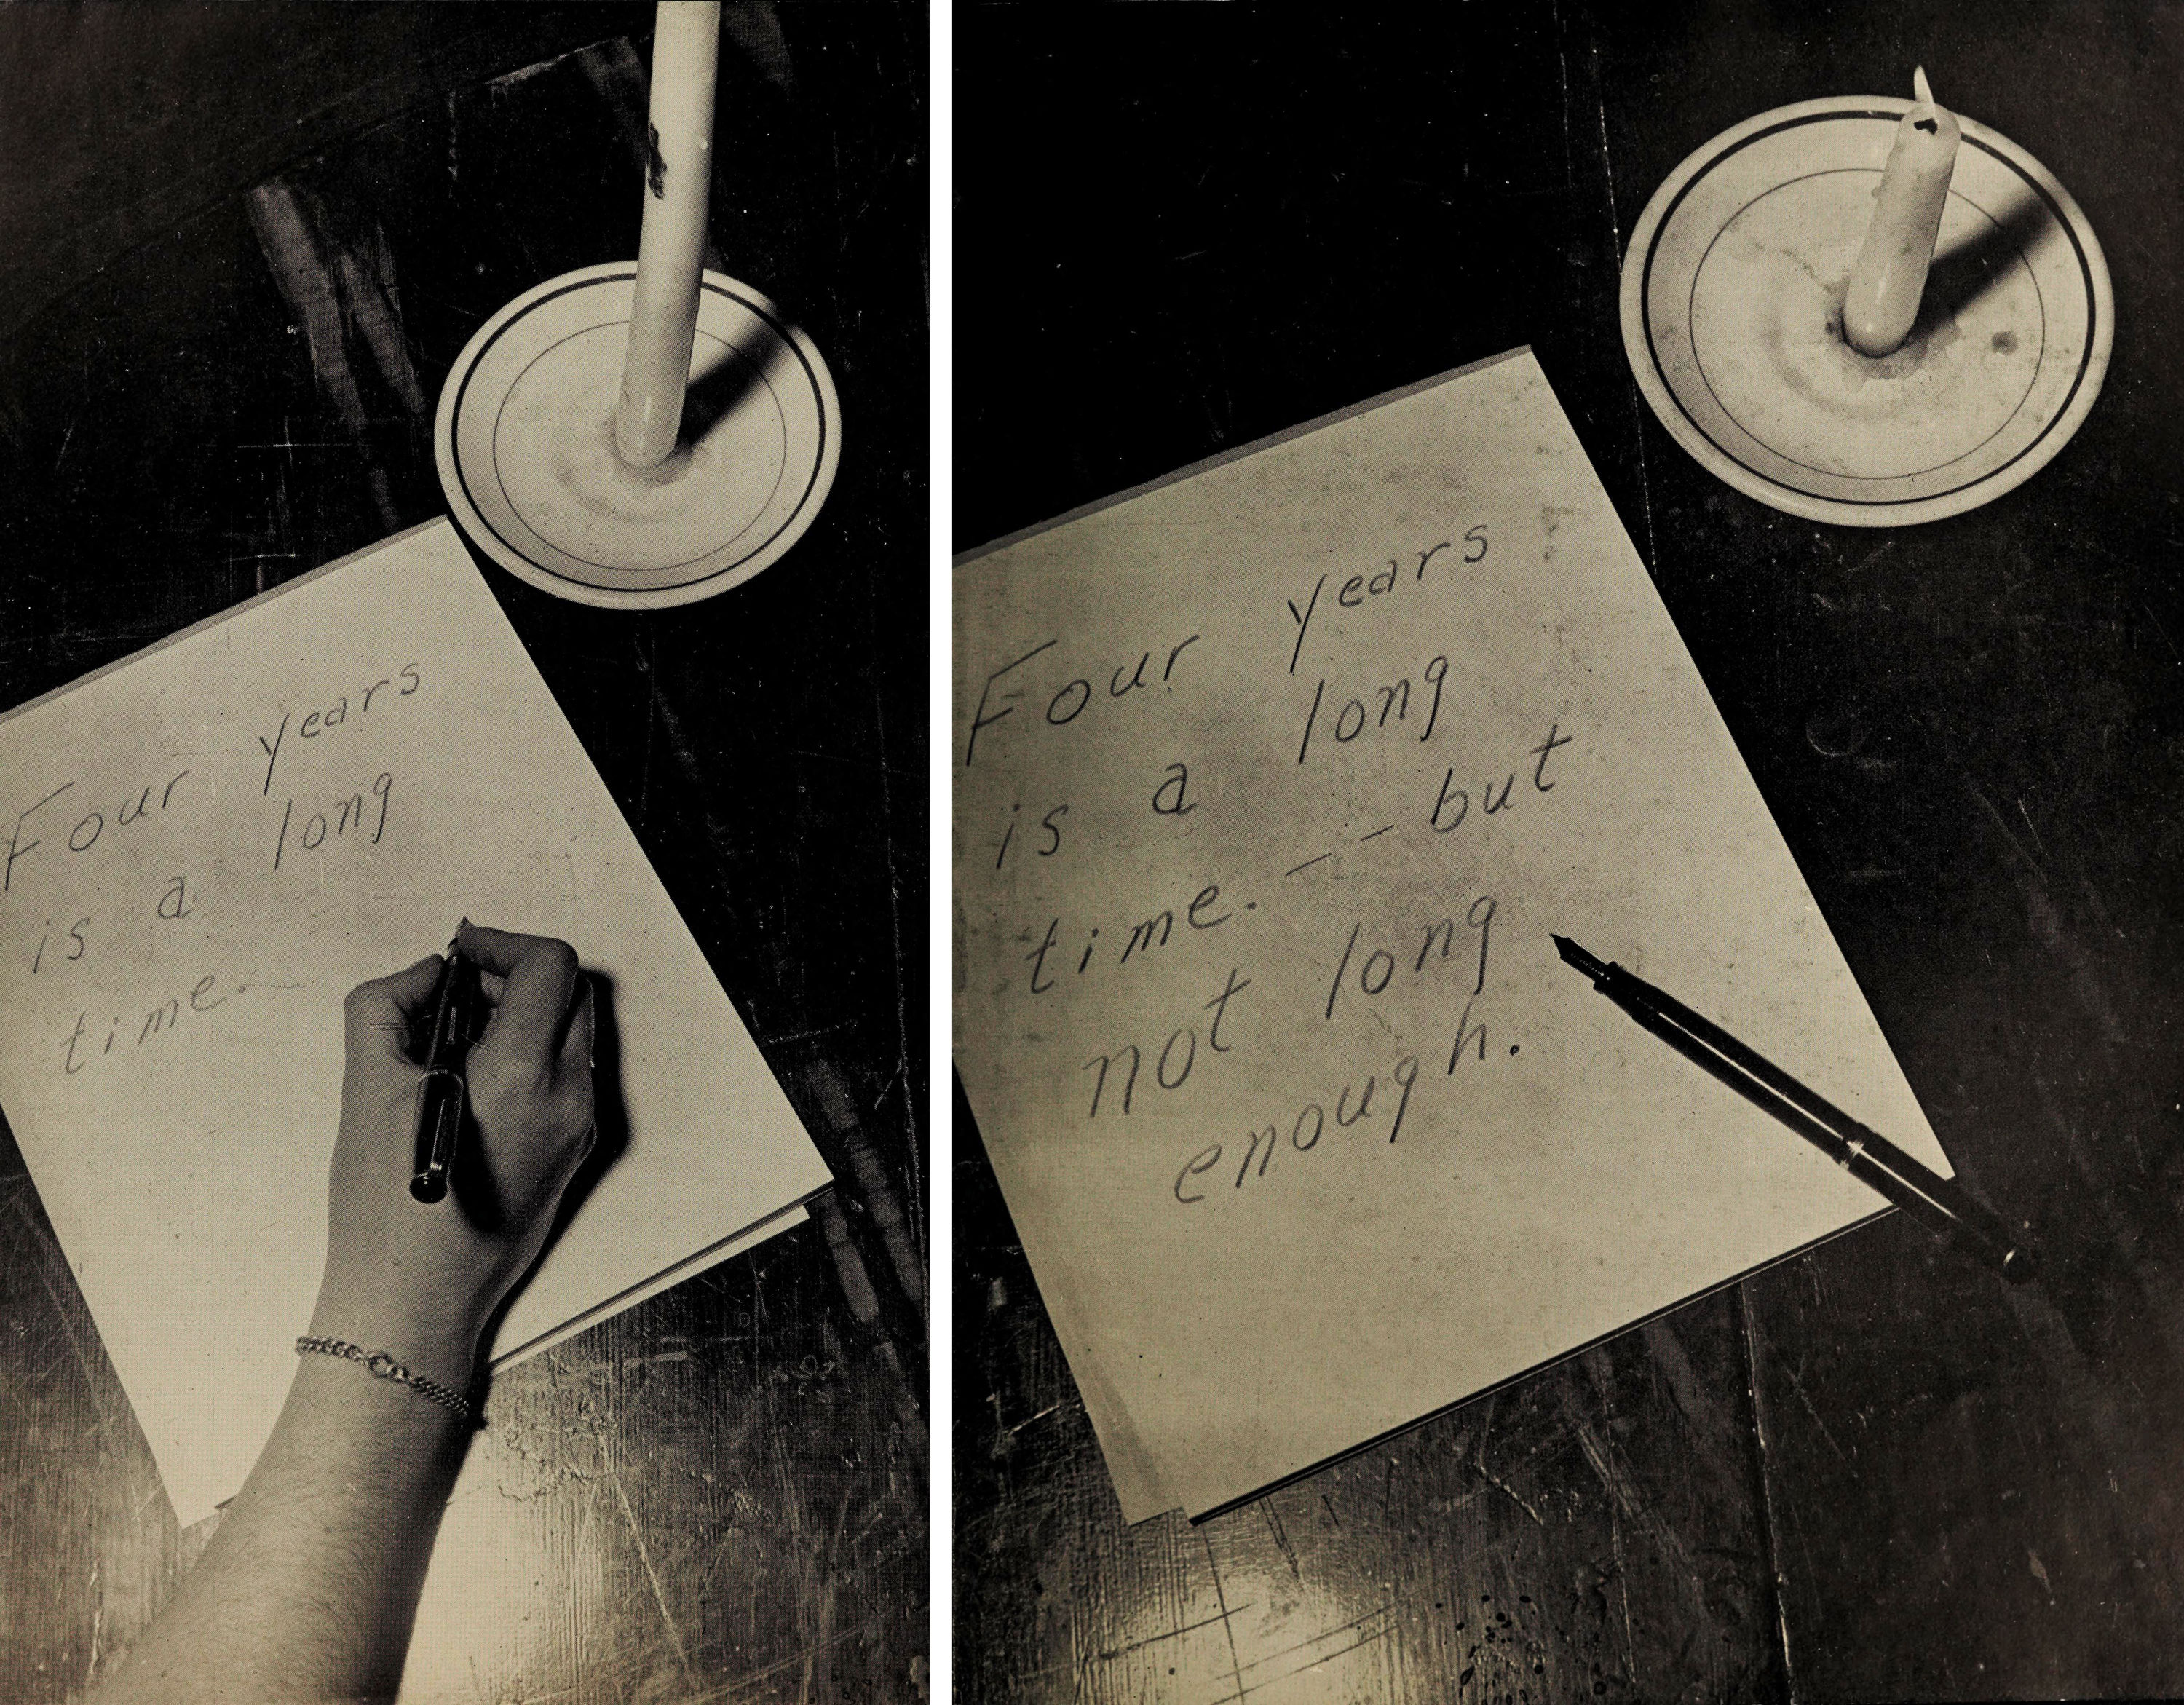 Four years
is a long
time.
Four years
is a long
time. -- but
not long
enough.